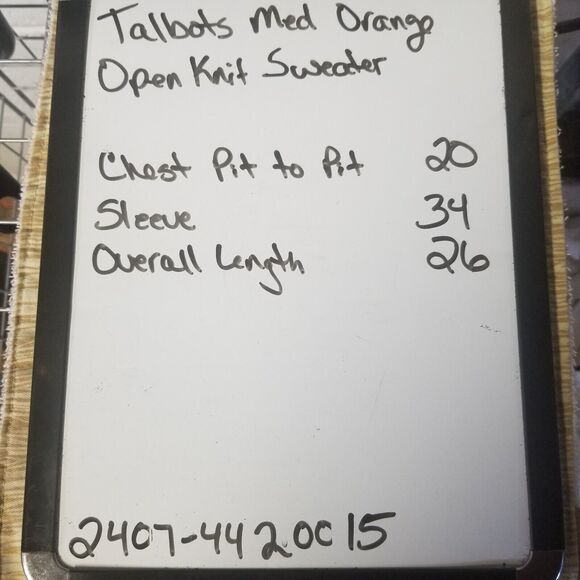 Talbots Med Orange
Open Knit Sweater
Chest Pit to Pit 20
Sleeve 34
Overall Length 26
2407-4420C15